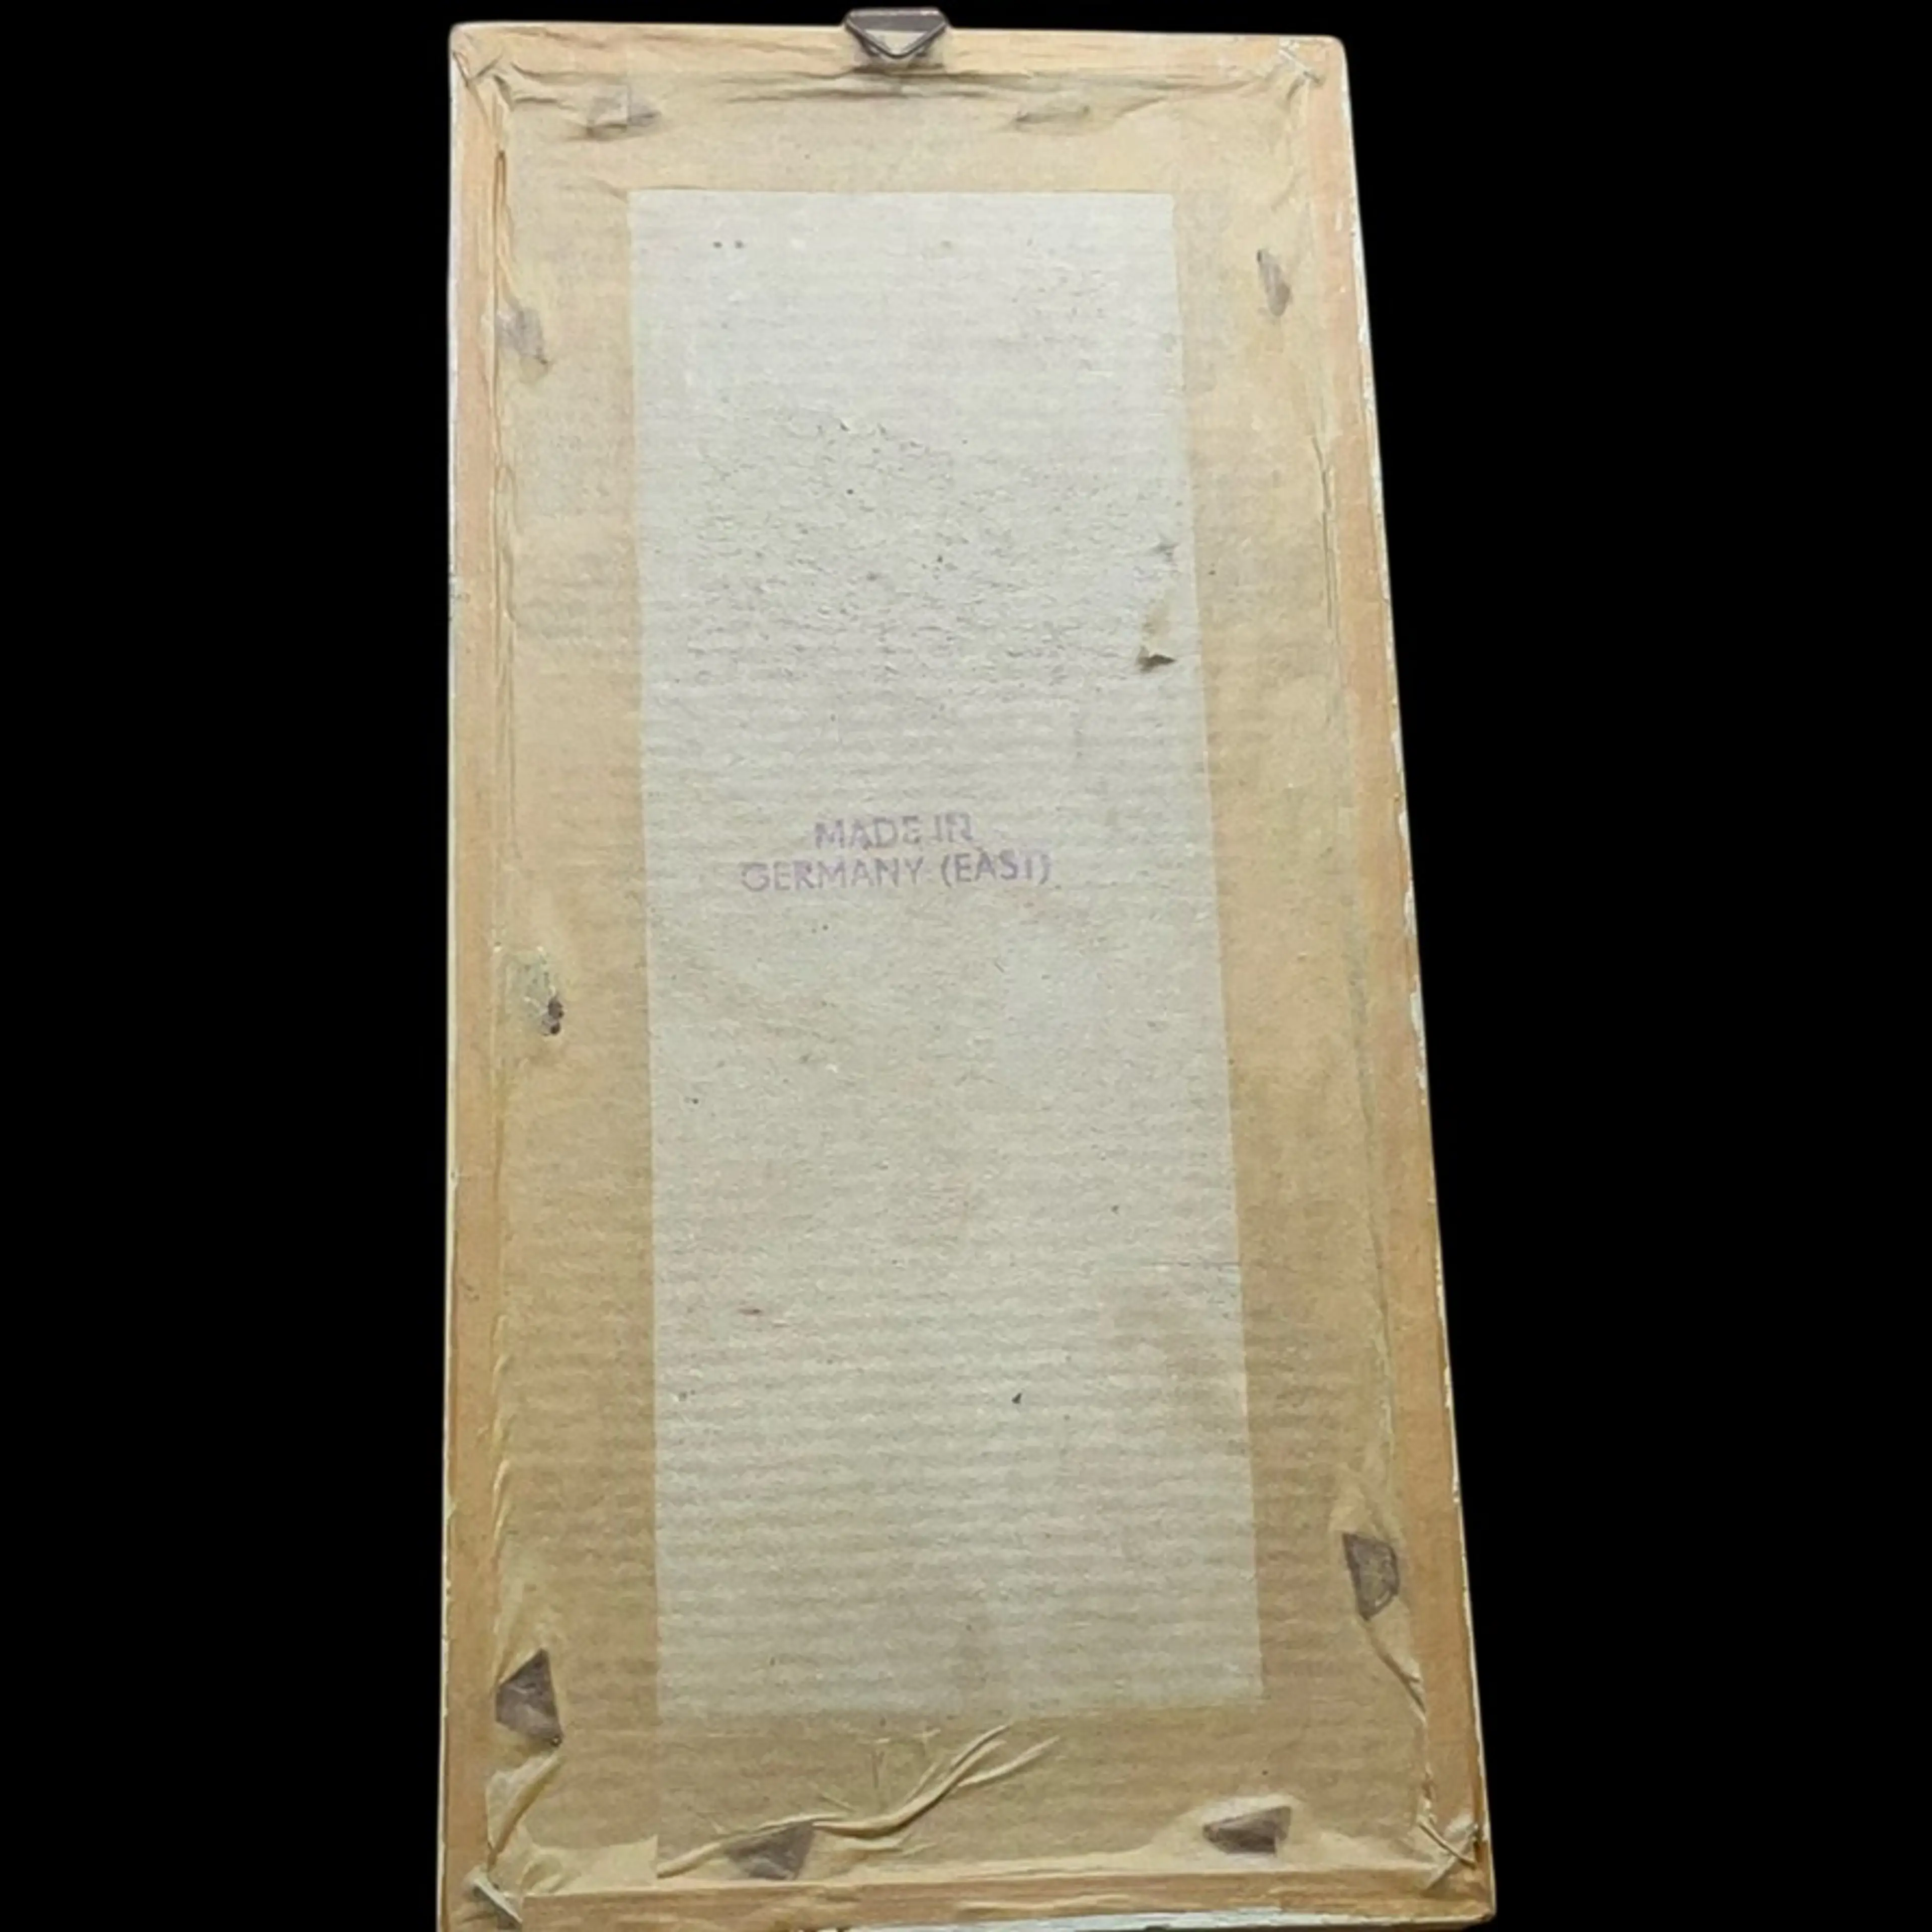 MADE IN
GERMANY (EAST)